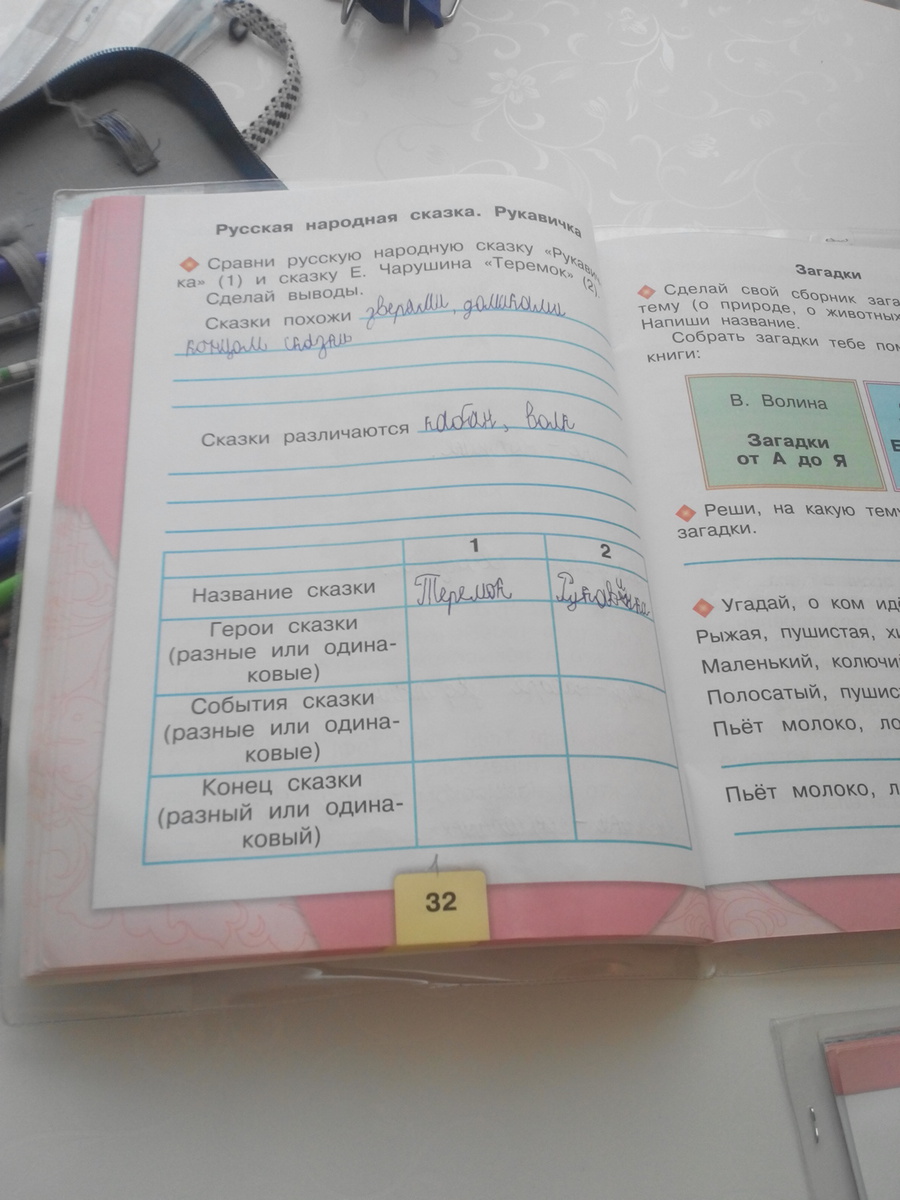 Русская народная сказка. Рукавичка
Сравни русскую народную сказку «Рукавич-
ка» (1) и сказку Е. Чарушина «Теремок» (2).
Сделай выводы.
Сказки похожи зверями, домиками
концом сказки
Сказки различаются кабан, волк
1 2
Название сказки Теремок Рукавичка
Герои сказки
(разные или одина-
ковые)
События сказки
(разные или одина-
ковые)
Конец сказки
(разный или одина-
ковый)
32
Загадки
Сделай свой сборник зага
тему (о природе, о животных
Напиши название.
Собрать загадки тебе пом
книги:
В. Волина
Загадки
от А до Я
Реши, на какую тему
загадки.
Угадай, о ком идё
Рыжая, пушистая, хи
Маленький, колючи
Полосатый, пушис
Пьёт молоко, ло
Пьёт молоко, л